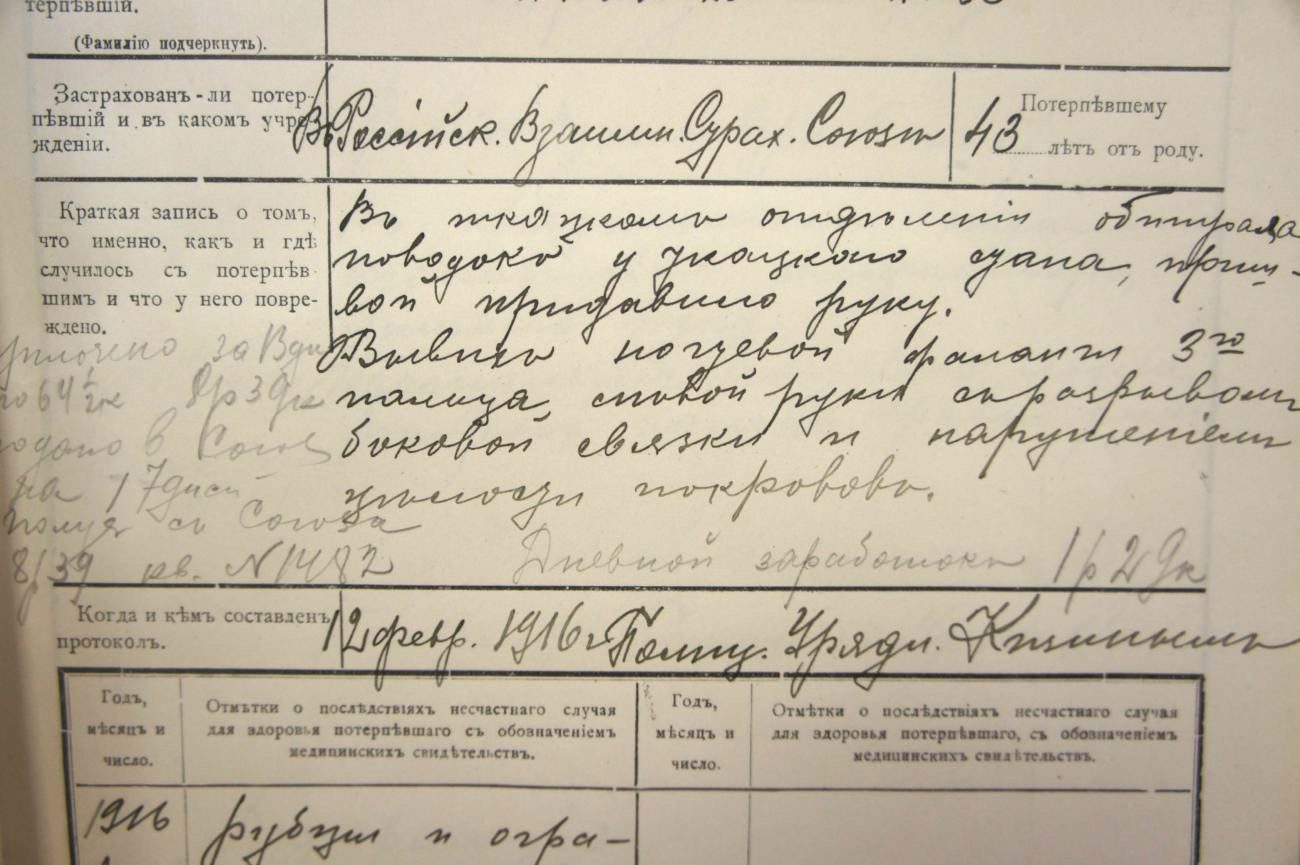 терпѣвшій.
(Фамилію подчеркнуть).
Застрахованъ-ли потер-
пѣвшій и въ какомъ учре-
жденіи.
Въ Россійск. Взаимн. Страх. Союзѣ
43
Потерпѣвшему
лѣтъ отъ роду.
Краткая запись о томъ,
что именно, какъ и гдѣ
случилось съ потерпѣв-
шимъ и что у него повре-
ждено.
Въ ткацкомъ отдѣленіи обтирала
поводокъ у ткацкаго стана,
вой придавило руку.
Вывихъ ногтевой фаланги 3го
пальца, лѣвой руки съ разрывомъ
боковой связки и нарушеніемъ
цѣлости покрововъ.
Дневной заработокъ 1р29к
уплочено за 6 дн
по 64½к 3р 3 9к
подано в Союз
на 17 дней
получ съ Союза
8р39 кв. N1482
Когда и кѣмъ составленъ
протоколъ.
12 февр. 1916г Полиц. Урядн.
Годъ,
мѣсяцъ и
число.
Отмѣтки о послѣдствіяхъ несчастнаго случая
для здоровья потерпѣвшаго съ обозначеніемъ
медицинскихъ свидѣтельствъ.
Годъ,
мѣсяцъ и
число.
Отмѣтки о послѣдствіяхъ несчастнаго случая
для здоровья потерпѣвшаго, съ обозначеніемъ
медицинскихъ свидѣтельствъ.
1916
рубцы и огра-